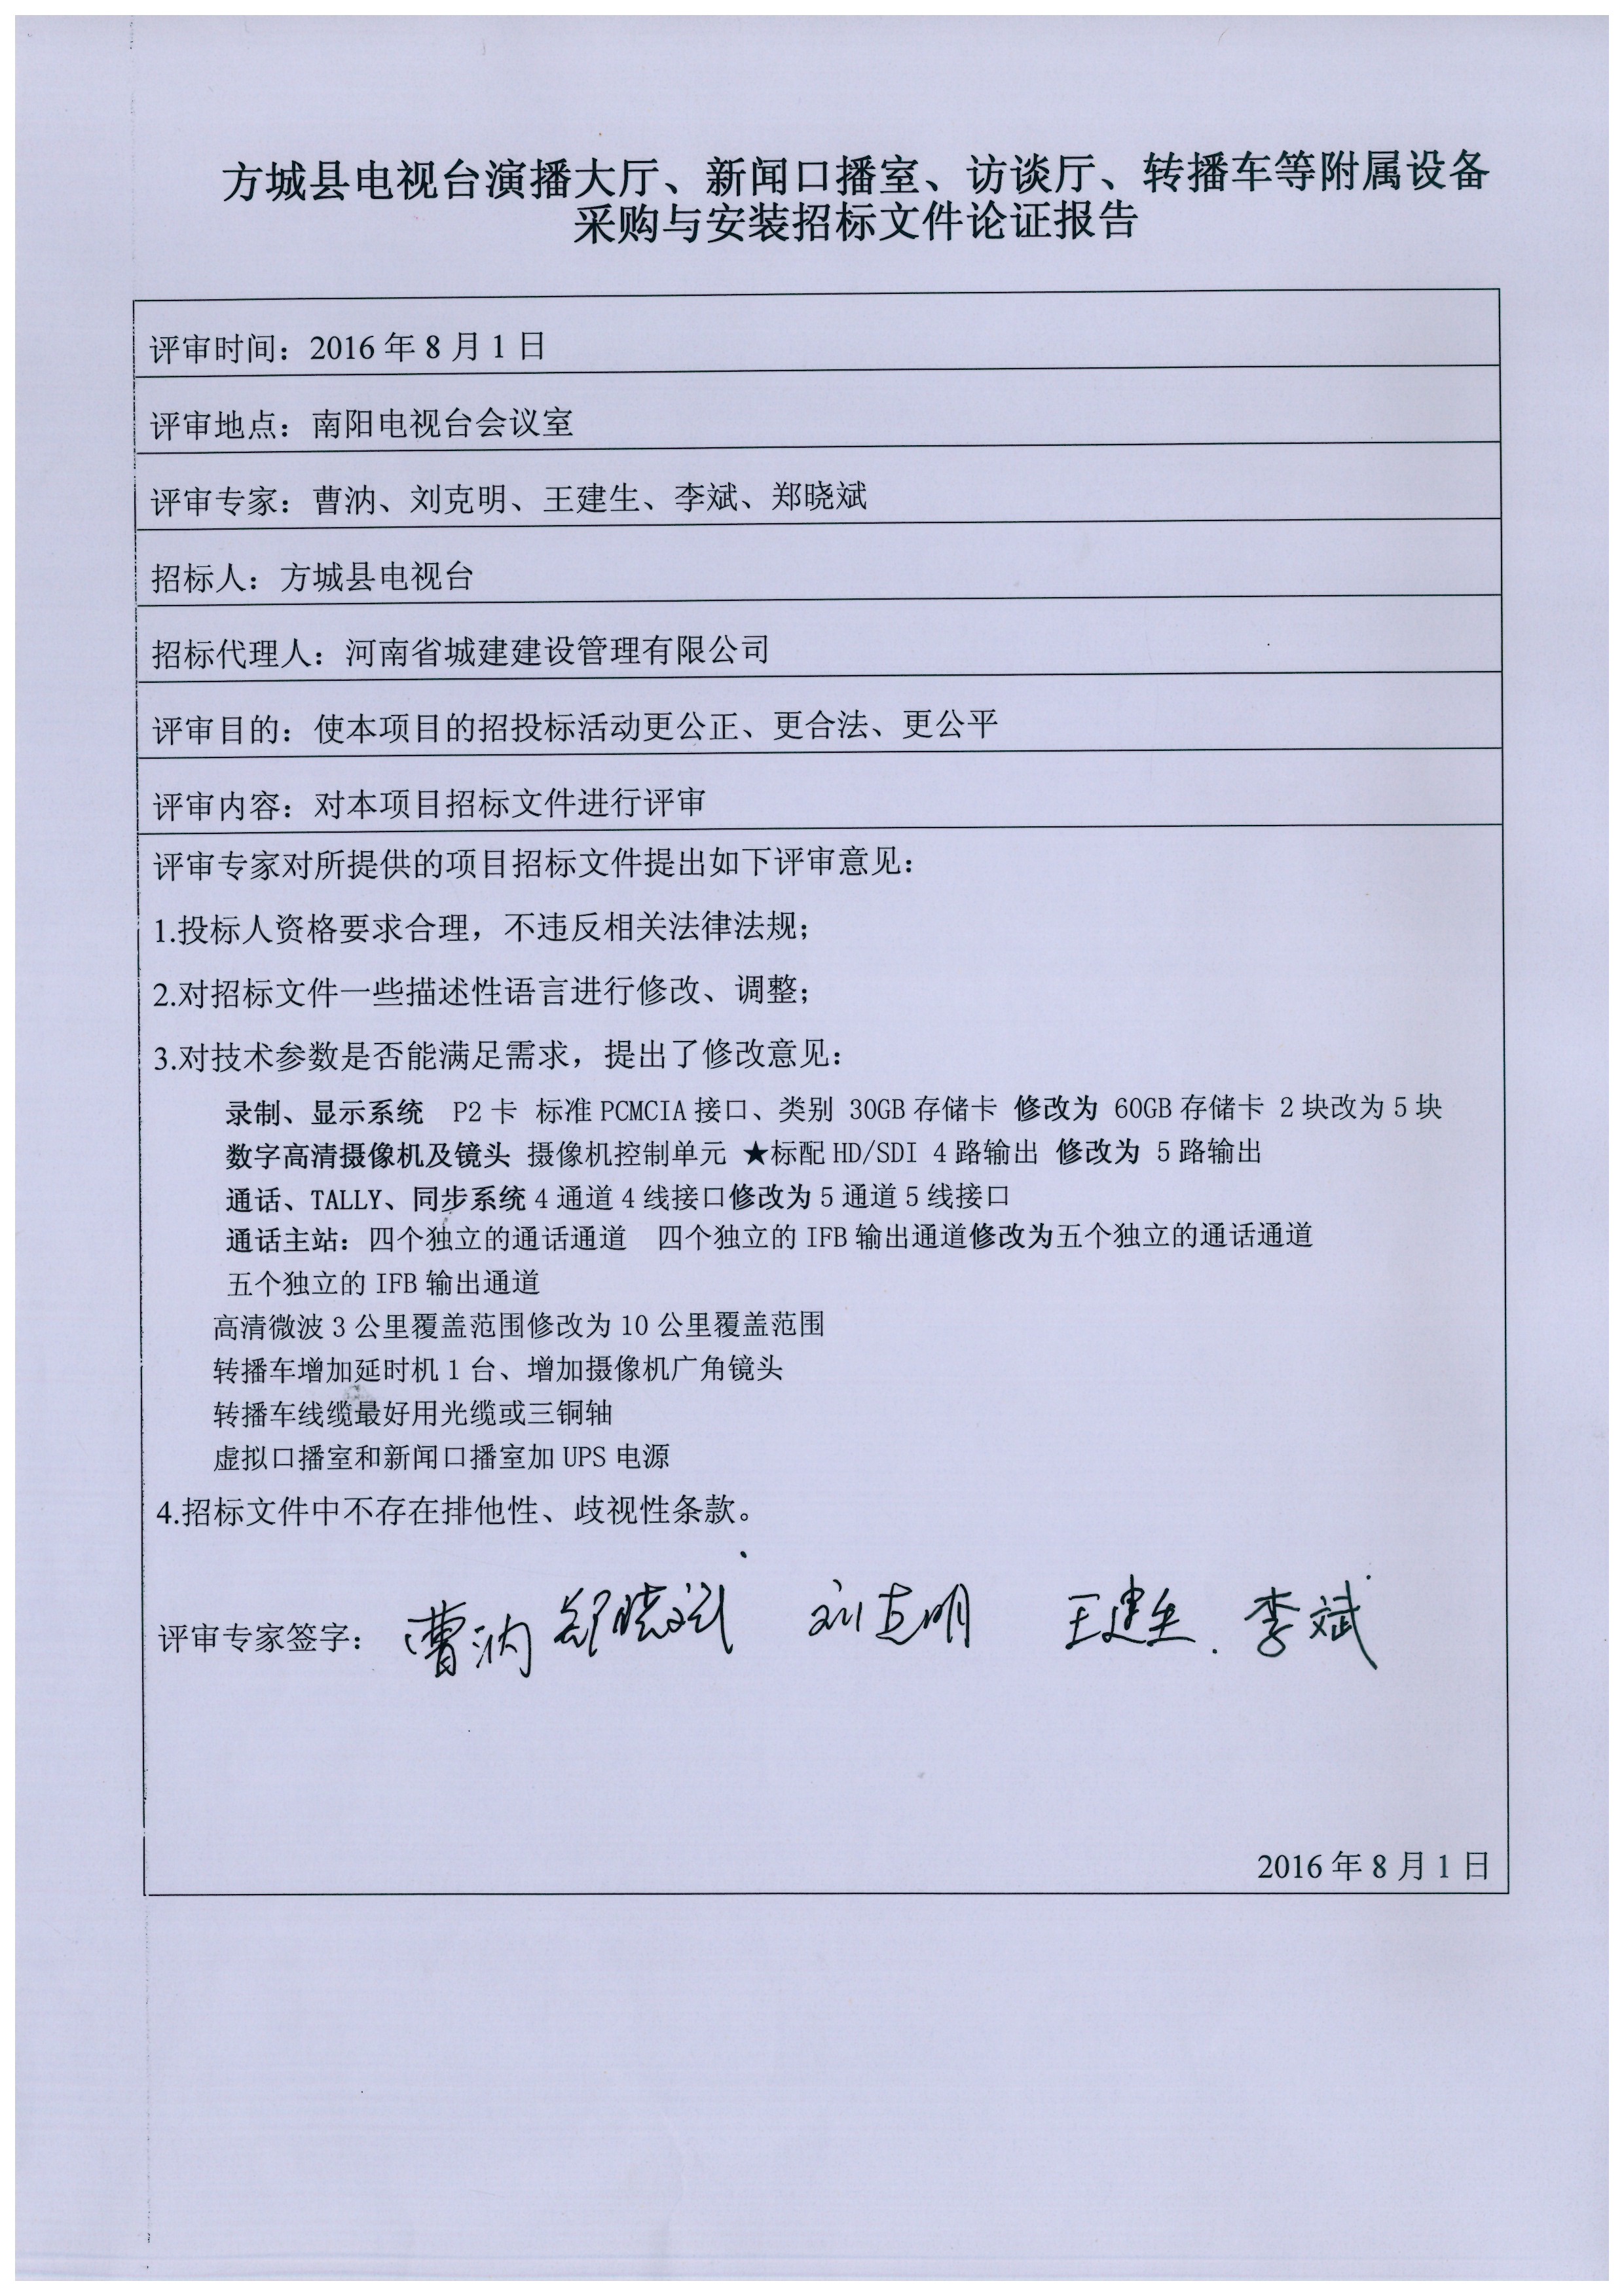 方城县电视台演播大厅、新闻口播室、访谈厅、转播车等附属设备
采购与安装招标文件论证报告
评审时间：2016 年 8 月 1 日
评审地点：南阳电视台会议室
评审专家：曹汭、刘克明、王建生、李斌、郑晓斌
招标人：方城县电视台
招标代理人：河南省城建建设管理有限公司
评审目的：使本项目的招投标活动更公正、更合法、更公平
评审内容：对本项目招标文件进行评审
评审专家对所提供的项目招标文件提出如下评审意见：
1.投标人资格要求合理，不违反相关法律法规；
2.对招标文件一些描述性语言进行修改、调整；
3.对技术参数是否能满足需求，提出了修改意见：
录制、显示系统 P2 卡 标准 PCMCIA 接口、类别 30GB 存储卡 修改为 60GB 存储卡 2 块改为 5 块
数字高清摄像机及镜头 摄像机控制单元 ★标配 HD/SDI 4 路输出 修改为 5 路输出
通话、TALLY、同步系统 4 通道 4 线接口修改为 5 通道 5 线接口
通话主站：四个独立的通话通道 四个独立的 IFB 输出通道修改为五个独立的通话通道
五个独立的 IFB 输出通道
高清微波 3 公里覆盖范围修改为 10 公里覆盖范围
转播车增加延时机 1 台、增加摄像机广角镜头
转播车线缆最好用光缆或三铜轴
虚拟口播室和新闻口播室加 UPS 电源
4.招标文件中不存在排他性、歧视性条款。
评审专家签字：曹汭 郑晓斌 刘克明 王建生 李斌
2016 年 8 月 1 日